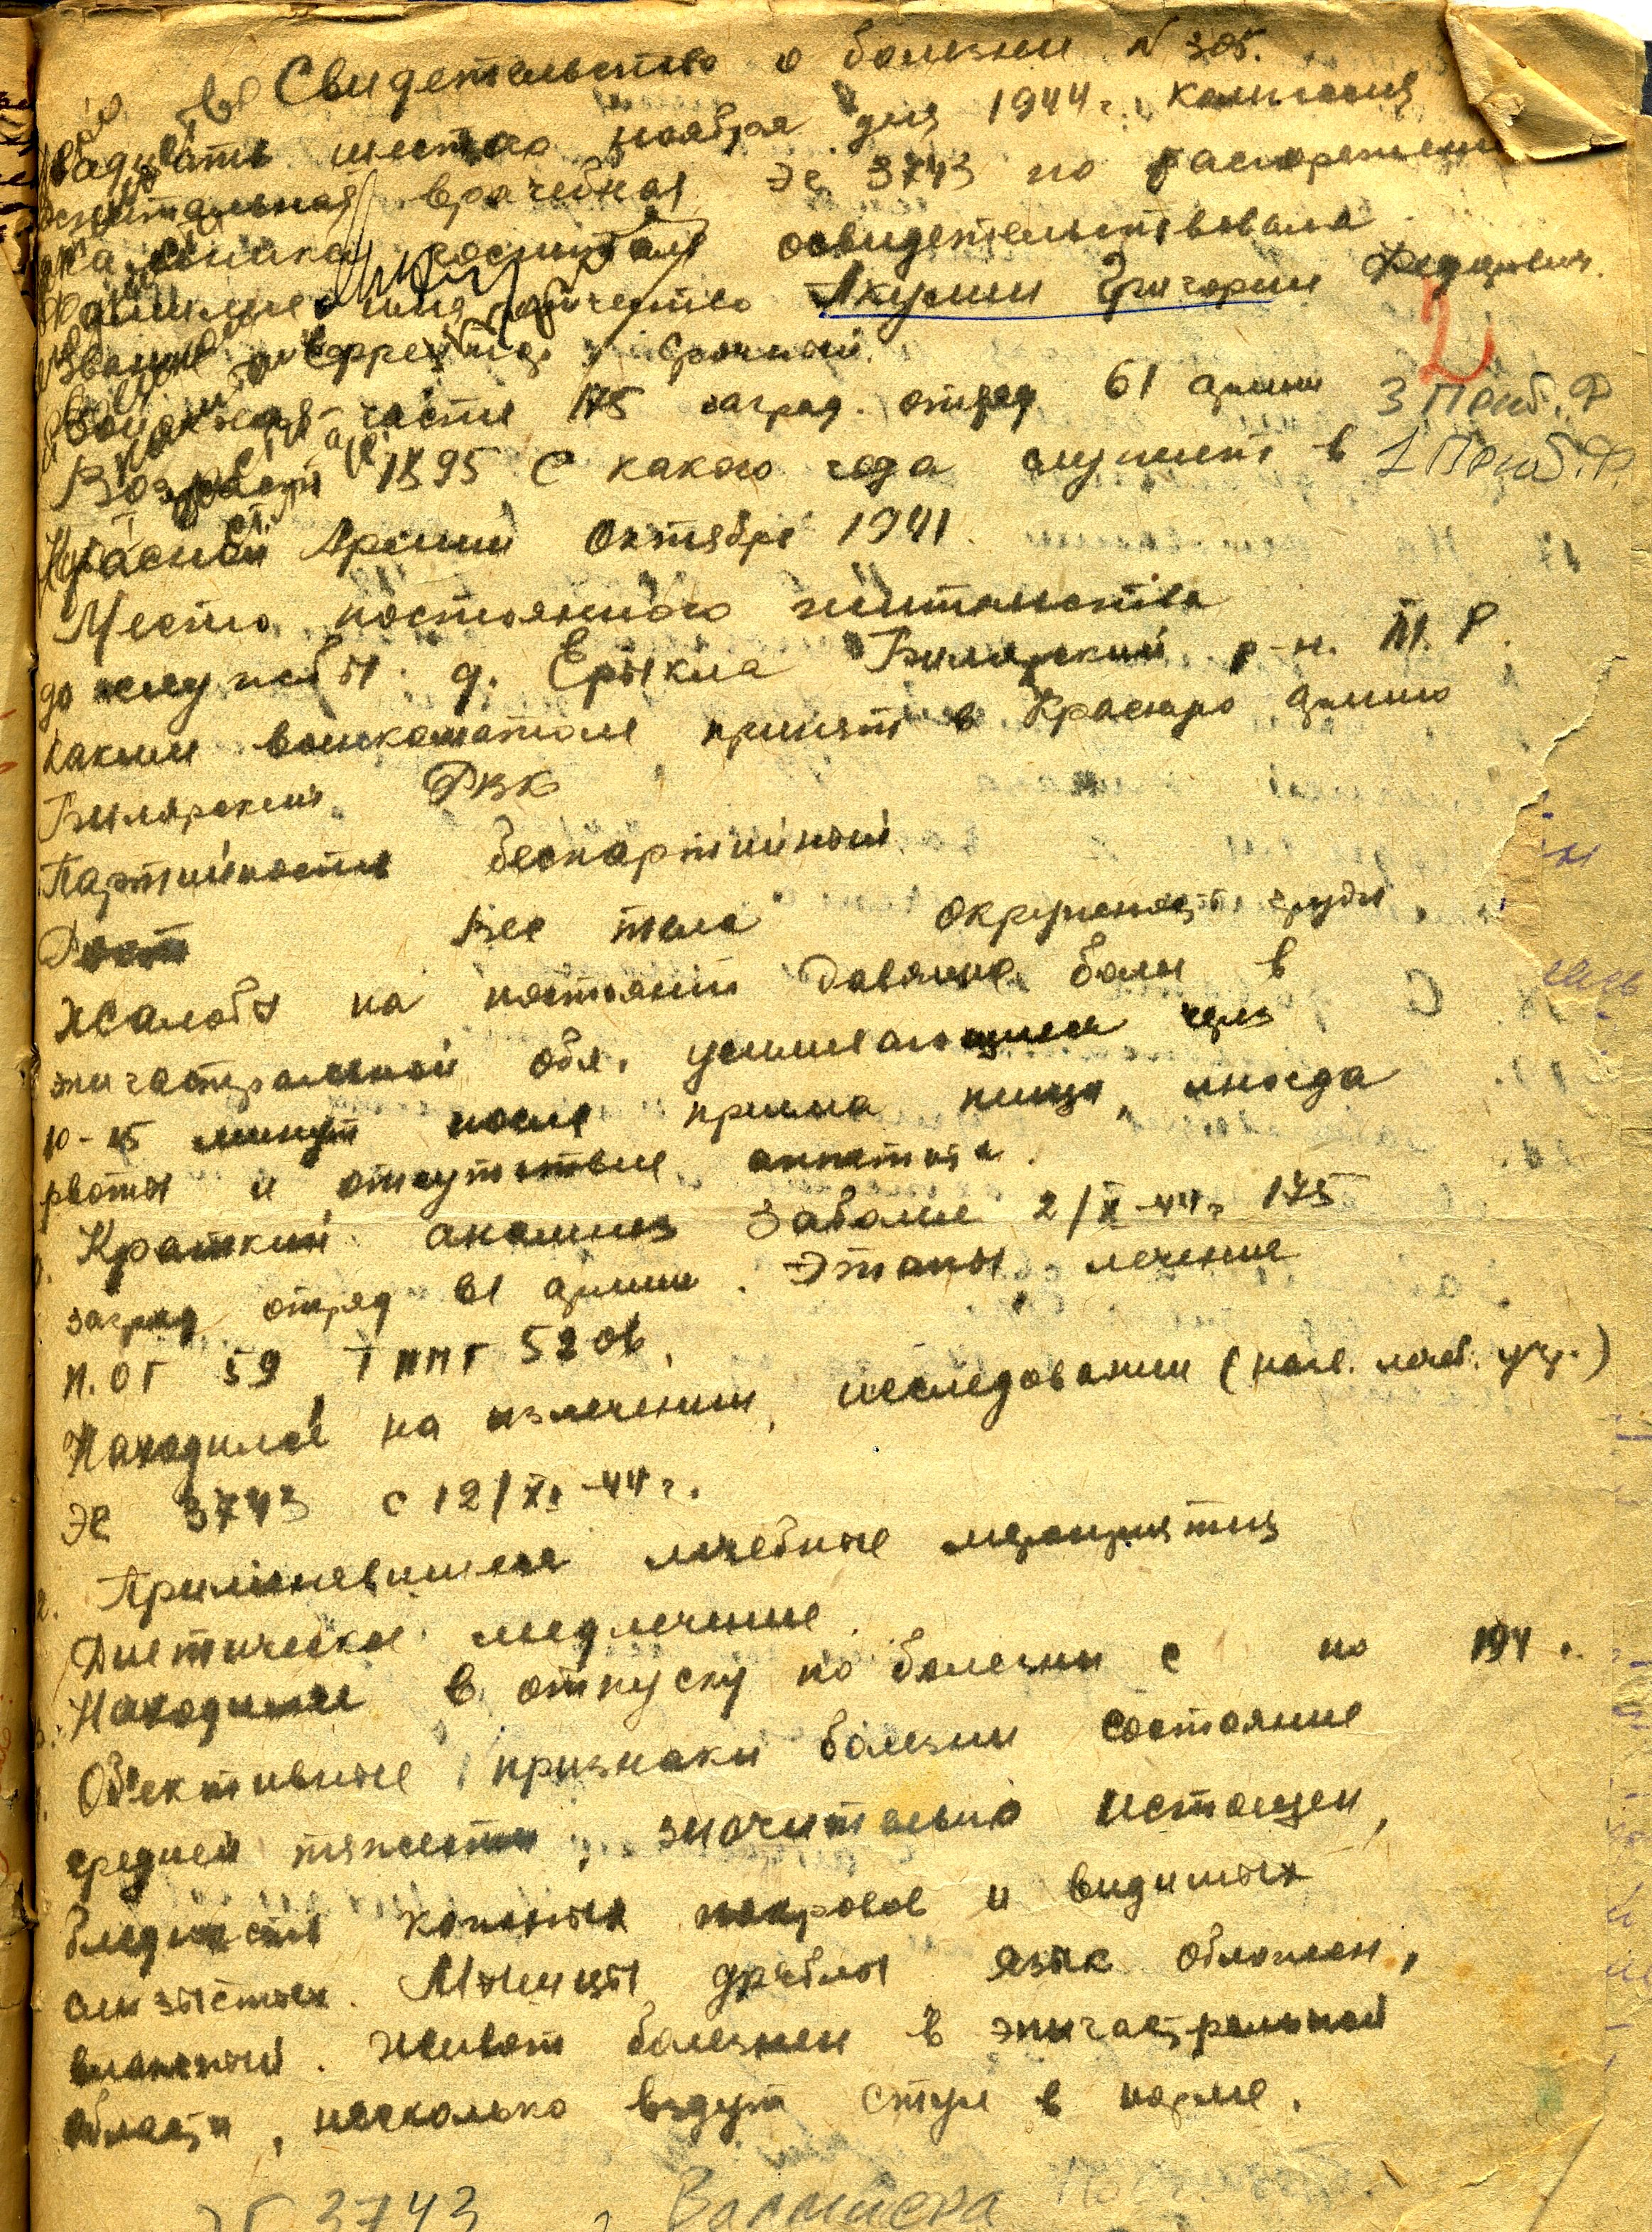 Свидетельство о болезни N 305.
Двадцать шестого ноября дня 1944 г. комиссия
госпитальная врачебная ЭГ 3743 по распоряжению
начальника госпиталя освидетельствовала
Фамилие имя отчество Акулин Григории Федорович.
Звание ефрейтор срочный.
Воинская часть 175 заград. отряд 61 армии 3 Приб. Ф
Возраст 1895 С какого года служит в 1 Приб. Ф.
Красной Армии Октября 1941.
Место постоянного жительства
до службы д. Ерыкла Билярский р-н. Т. Р.
каким воинкоматом принят в Красную армию
Билярским РВК
Партийность беспартийный
Рост Вес тела окружность груди
Жалобы на постоян давящие боли в
эпигастральной обл. усиливающиеся через
10-15 минут после приема пищи, иногда
рвоты и отсутствие аппетита.
Краткий анамнез Заболел 2/X-44г. 175
заград отряд 61 армии. Этапы лечение
П.ОГ 59 ТППГ 5206.
Находился на излечении, исследовании (наев. лечеб. учр.)
ЭГ 3743 с 12/XI-44 г.
2. Применявшиеся лечебные мероприятия
Диетическое медлечение.
3. Находился в отпуску по болезни с по 194 г.
Объективные признаки болезни состояние
средней тяжести, значительно истощен,
бледность кожных покровов и видимых
слизистых. Мышцы дряблы язык обложен,
влажный. Живот болезнен в эпигастральной
области, несколько вздут Стул в норме.
ЭГ 3743